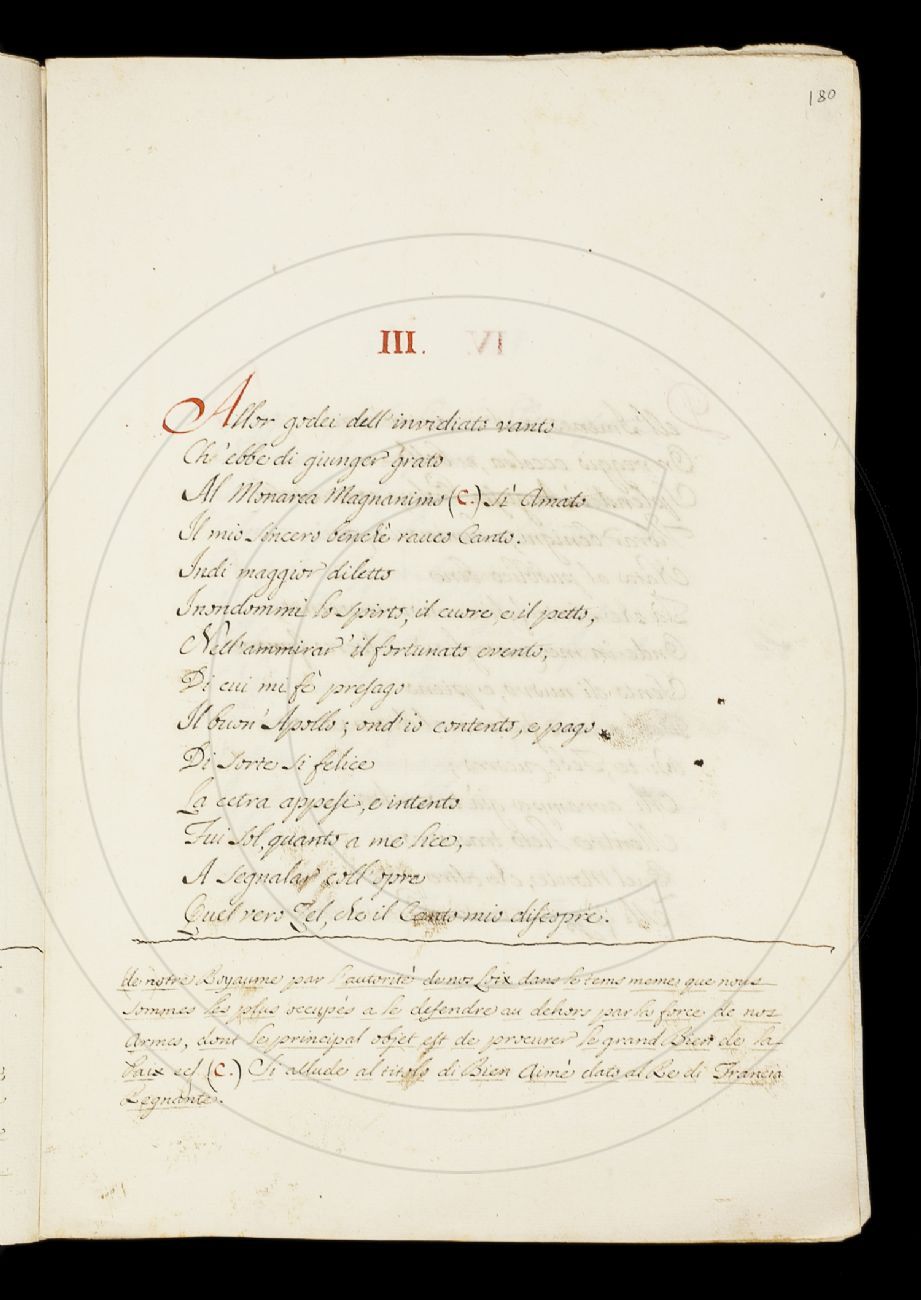 180
III.
Allor godei dell'invidiato vanto
Ch'ebbe di giunger grato
Al Monarca Magnanimo (C.) Si Amato
Il mio sincero benchè rauco Canto.
Indi maggior diletto
Inondommi lo spirto, il cuore, e il petto,
Nell'ammirar il fortunato evento,
Di cui mi fè presago
Il buon Apollo; ond'io contento, e pago
Di sorte si felice
La cetra appesi, e intento
Fui sol, quanto a me lice,
A segnalar coll'opre
Quel vero Zel, che il Canto mio discopre.
de notre Royaume par l'autorité de nos Loix dans le tems meme que nous
sommes les plus occupés a le defendre au dehors par la force de nos
Armes, dont le principal objet est de procurer le grand Bien de la
Paix ect (C.) Si allude al titolo di Bien Aimè dato al Re di Francia
Regnante.